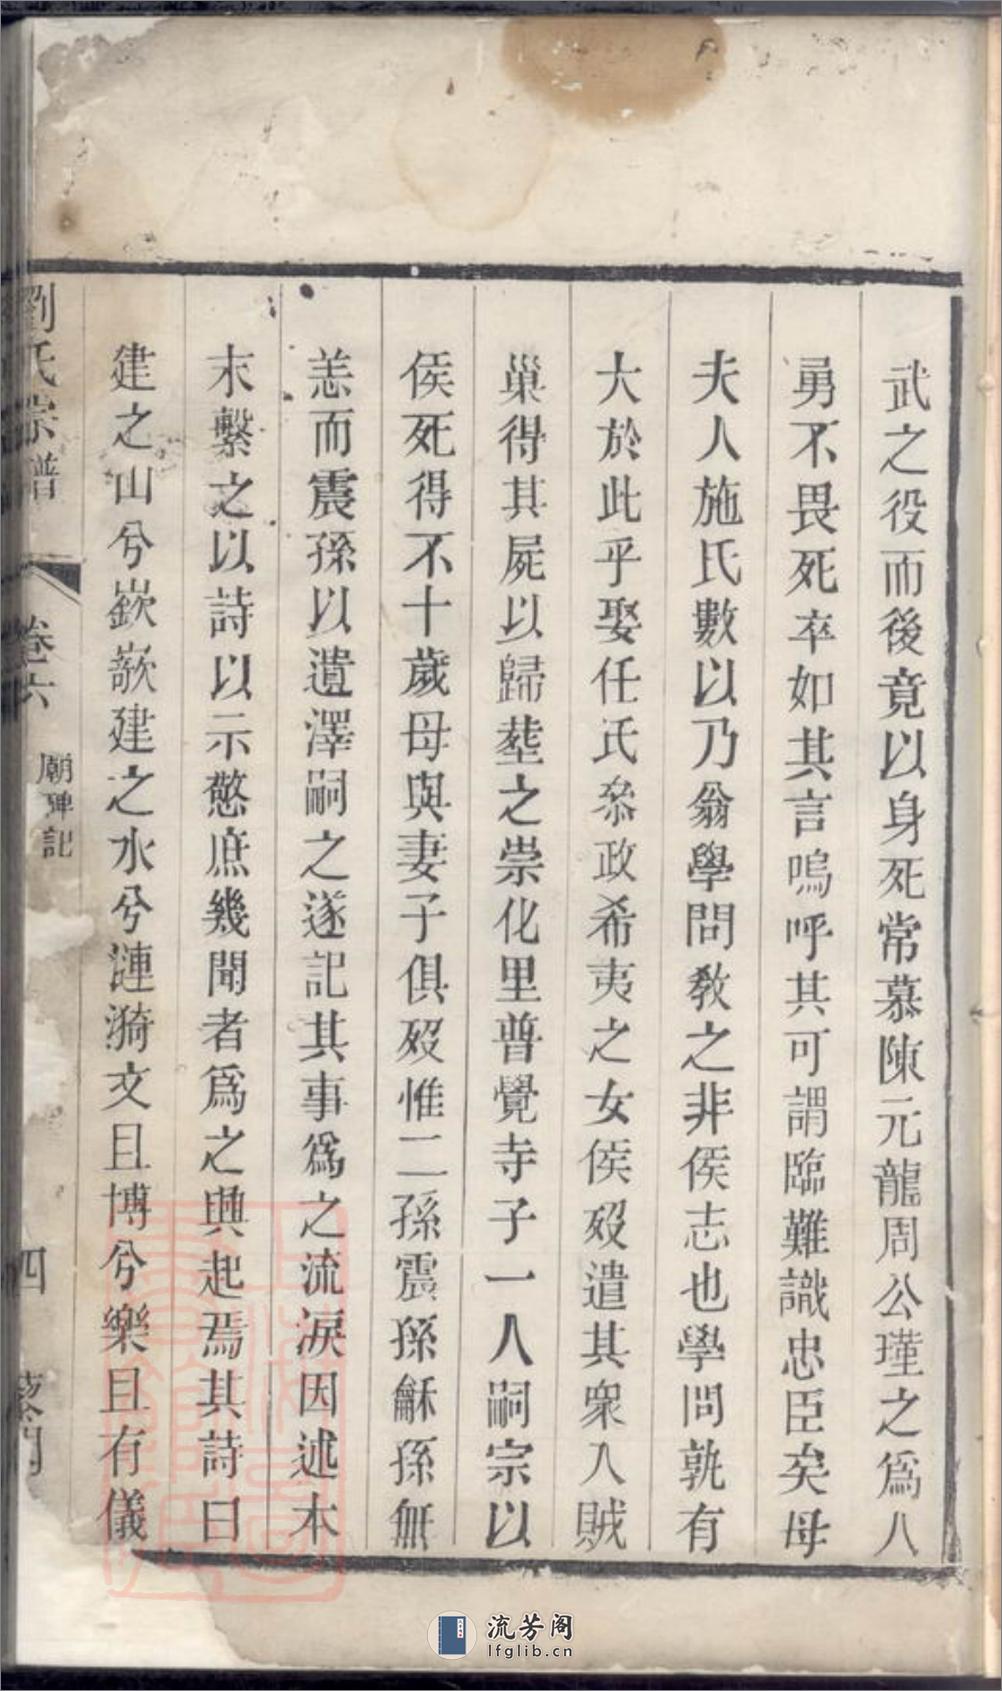 武之役而後竟以身死常慕陳元龍周公瑾之爲人
勇不畏死卒如其言嗚呼其可謂臨難識忠臣矣母
夫人施氏數以乃翁學問敎之非侯志也學問孰有
大於此乎娶任氏叅政希夷之女侯歿遣其衆入賊
巢得其屍以歸塟之崇化里普覺寺子一人嗣宗以
侯死得不十歲母與妻子俱歿惟二孫震孫龢孫無
恙而震孫以遺澤嗣之遂記其事爲之流淚因述本
末繫之以詩以示憖庶幾聞者爲之興起焉其詩曰
建之山兮嶔嶔建之水兮漣漪文且博兮樂且有儀
劉氏宗譜
卷六
廟碑記
四
流芳阁
lfglib.cn